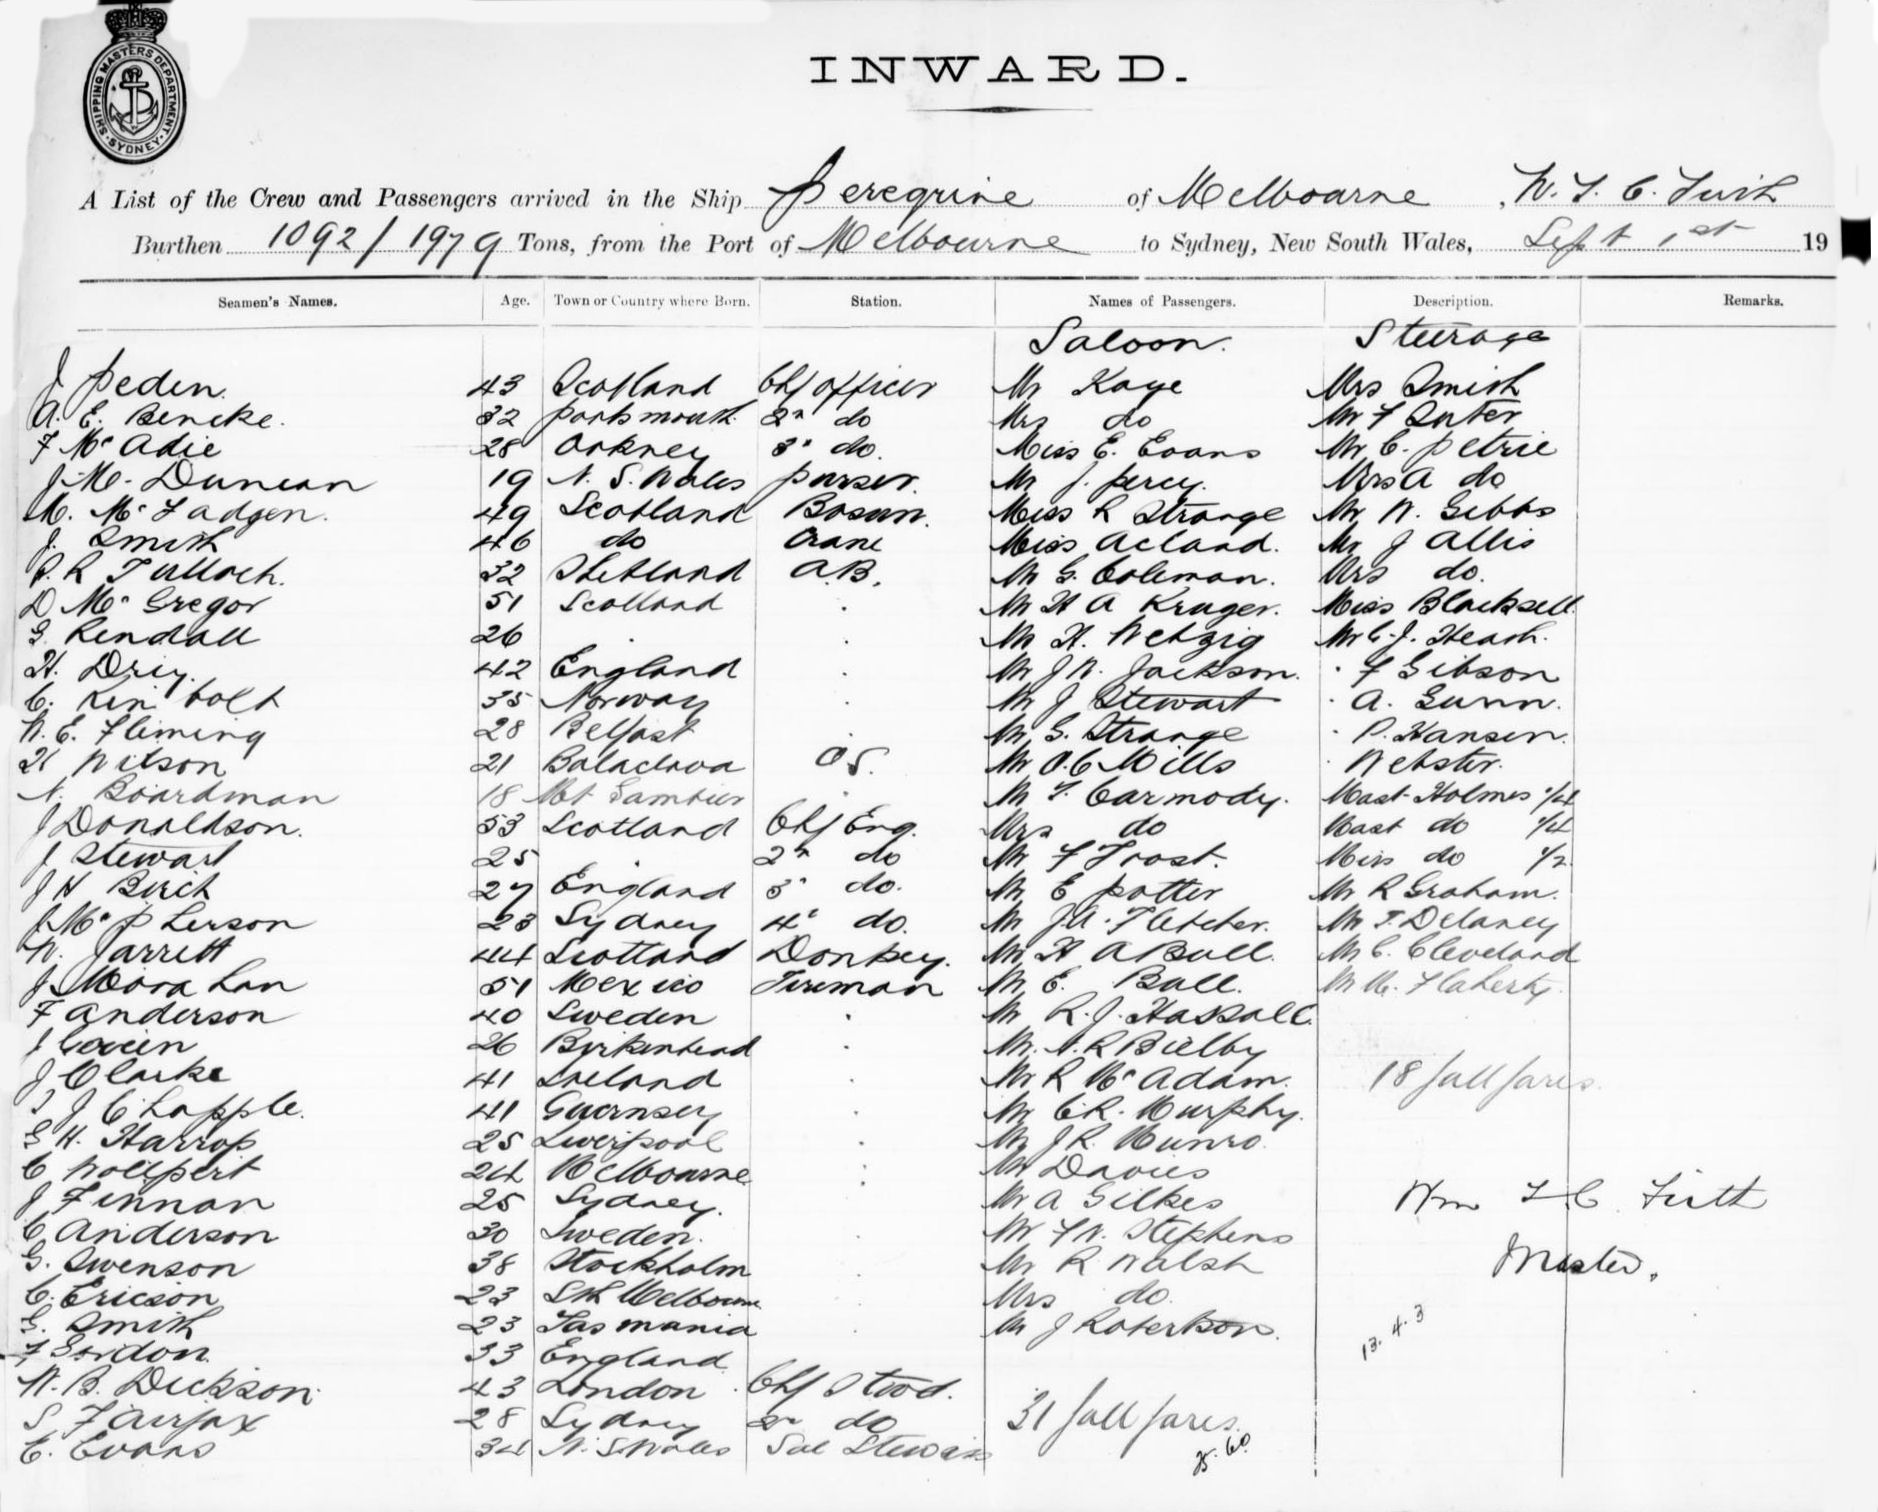 SHIPPING MASTERS DEPARTMENT
SYDNEY
INWARD.
A List of the Crew and Passengers arrived in the Ship Peregrine of Melbourne, W. T. C. Firth
Burthen 1092/1979 Tons, from the Port of Melbourne to Sydney, New South Wales, Sept 1st 19
Seamen's Names. Age. Town or Country where Born. Station. Names of Passengers. Description. Remarks.
Saloon. Steerage
J Peden. 43 Scotland Chf Officer Mr Kaye Mrs Smith
A. E. Bencke. 32 Portsmouth 2n do Mrs do Mr F Suter
F McAdie 28 Orkney 3" do. Miss E. Evans Mr C. Petrie
J. M. Duncan 19 N. S. Wales Purser. Mr J. Percy. Mrs A do
M. McFadgen. 49 Scotland Bosun. Miss R Strange Mr W. Gibbs
J. Smith 46 do Crane Miss Acland. Mr J Allis
P. R Tulloch. 32 Shetland A.B. Mr G. Coleman. Mrs do.
D McGregor 51 Scotland . Mr H A Kruger. Miss Blacksell.
G. Rendall 26 . . Mr H. Wetzig Mr C. J. Heath.
H. 42 England . Mr J W. Jackson. . F Gibson
C. 35 Norway . Mr J Stewart . A. Gunn.
W. E. Fleming 28 Belfast . Mr G. Strange . P. Hansen.
H Wilson 21 Balaclava O S. Mr O. C Mills . Webster.
N. Boardman 18 Mt Gambier . Mr T. Carmody. Mast Holmes 1/4
J Donaldson. 53 Scotland Chf Eng. Mrs do Mast do 1/4
J Stewart 25 . 2n do Mr F Frost. Miss do 1/2
J H Birch 27 England 3" do. Mr E Potter Mr R Graham.
J. McPherson 23 Sydney 4" do. Mr J. A. Fletcher. Mr T. Delaney
W. Jarrett 44 Scotland Donkey. Mr H A Bull. Mr C. Cleveland
J. 51 Mexico Fireman Mr E. Ball. Mr M. Flaherty.
F Anderson 40 Sweden . Mr R. J. Hassall.
J 26 Birkenhead . Mr. N. R Bielby
J Clarke 41 Ireland . Mr R McAdam. 18 full fares.
T J Chapple. 41 Guernsey . Mr C. R. Murphy.
G H. Harrop 25 Liverpool . Mr J R. Munro.
C Wollpert 24 Melbourne . Mr Davies
J Finnan 25 Sydney. . Mr A Gilkes Wm T C. Firth
C Anderson 30 Sweden. . Mr F W. Stephens
G. Swenson 38 Stockholm . Mr R Walsh Master.
C. Ericson 23 Sth Melbourne . Mrs do.
G. Smith 23 Tasmania . Mr J Robertson.
F Gordon. 33 England 13. 4. 3
W. B. Dickson. 43 London . Chf Stwd.
S Fairfax 28 Sydney 2n do 31 full fares.
E. Evans 34 N. S Wales Sal Stewards 25. 60